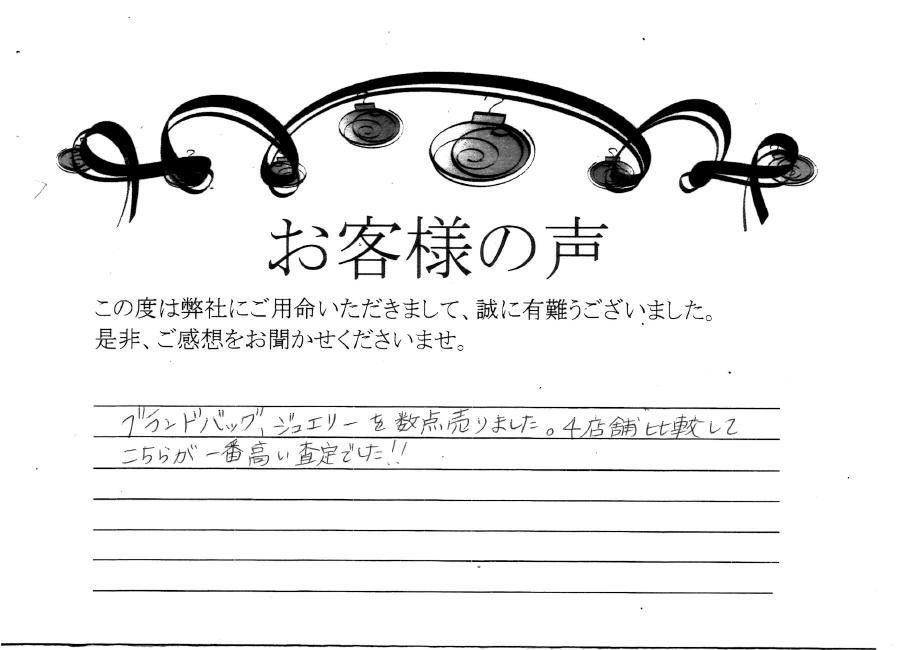 お客様の声
この度は弊社にご用命いただきまして、誠に有難うございました。
是非、ご感想をお聞かせくださいませ。
ブランドバッグ、ジュエリーを数点売りました。4店舗比較して
こちらが一番高い査定でした!!